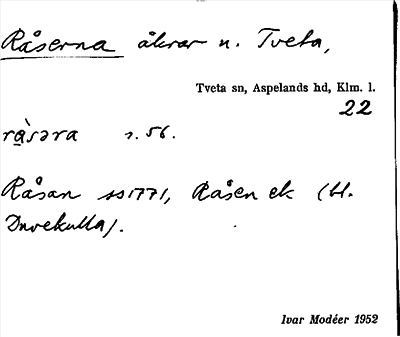 Råserna åkrar n. Tveta,
Tveta sn, Aspelands hd, Klm. l.
22
rᶏ̀səra s. 56.
Råsan ss 1771, Råsen ek (bl.
Duvekulla).
Ivar Modéer 1952